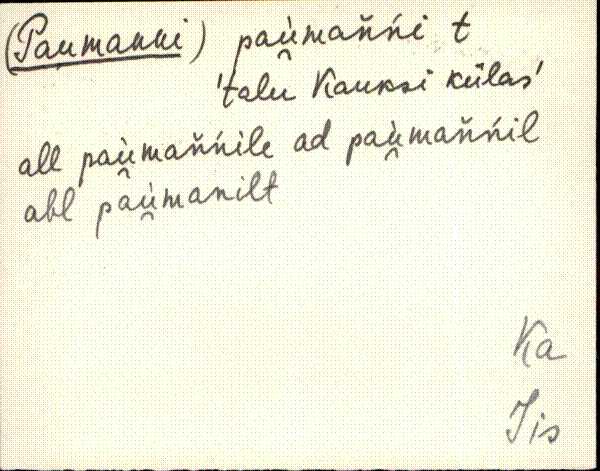 (Paumanni) paù̯mańńi t
'talu Kauksi külas'
all paù̯mańńile ad paù̯mańńil
abl paù̯manilt
Ka
Jis